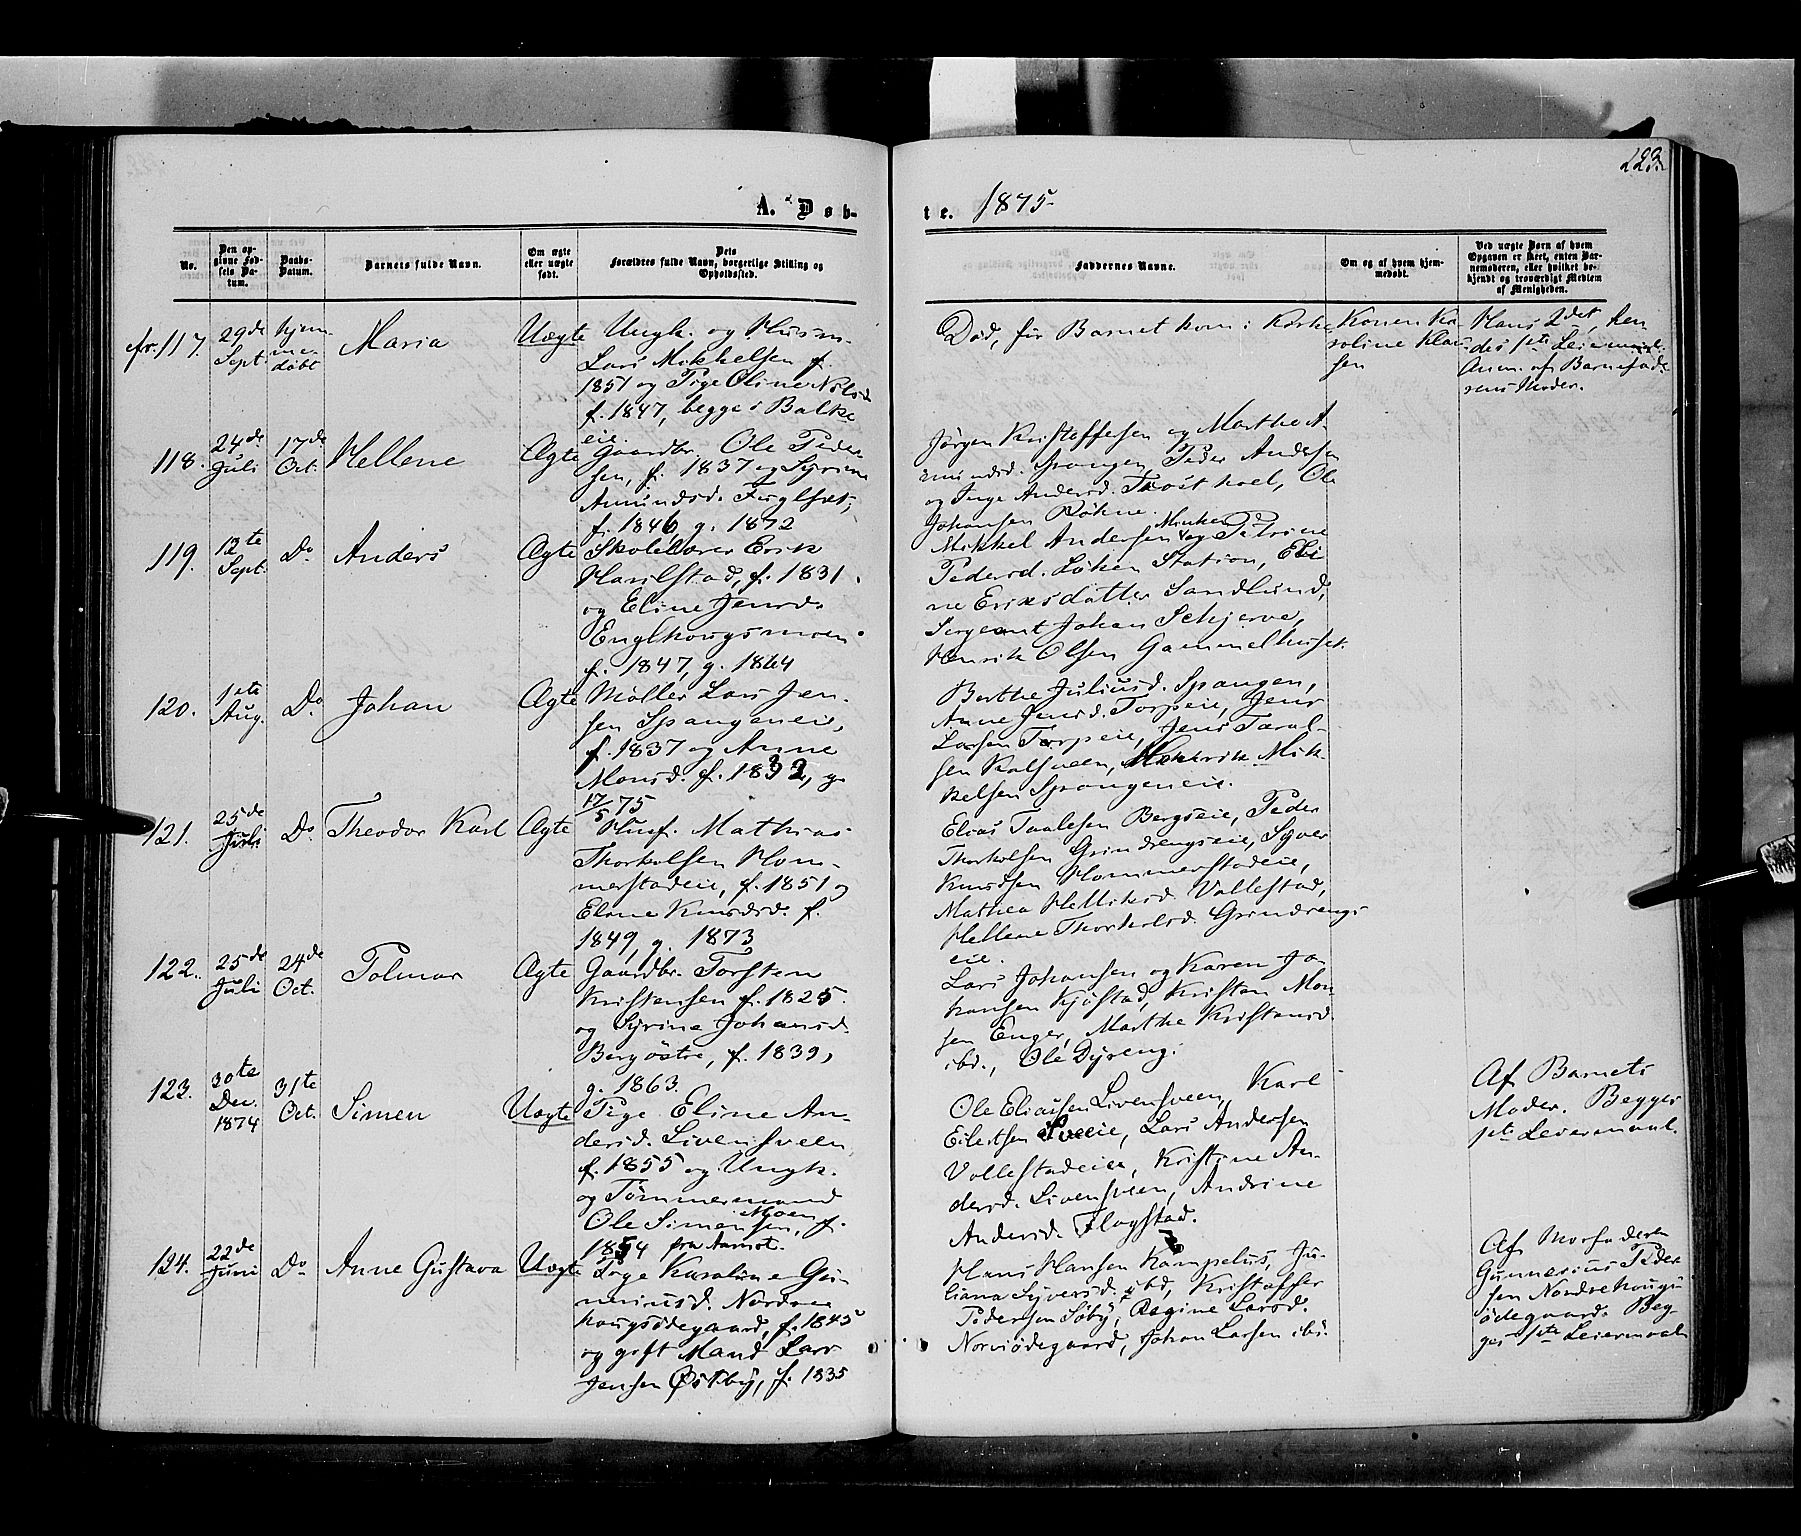 223.
A. Døb-
te. 1875
No.
Den op-
givne Fød-
sels Da-
tum.
Daabs-
Datum.
Barnets fulde Navn.
Om ægte
eller uægte
født.
Dets
Forældres fulde Navn, borgerlige Stilling og
Opholdssted.
Faddernes Navne.
Om og af hvem hjem-
medøbt.
Ved uægte Børn af hvem
Opgaven er skeet, enten Bar-
nemoderen, eller hvilket be-
kjendt og troværdigt Medlem
af Menigheden.
117.
29de
Sept
hjem-
me-
døbt
Maria
Uægte
Ungk. og Husm.
Lars Mikkelsen f.
1851 og Pige Oline Nilsd
f. 1847, begge i Balke
eie.
Død, før Barnet kom i Kirke
Konen Ka-
roline Klau-
sen
Hans 2det, hen
des 1ste Leiermaal.
Anm. af Barnefade
rens Moder.
118.
24de
Juli
17de
Oct.
Hellene
Ægte
Gaardbr. Ole Peder
sen, f. 1837 og Syrine
Amundsd.
f. 1846, g. 1872
Jørgen Kristoffersen og Marthe A-
mundsd. Spangen, Peder Andersen
og Inge Andersd. Ole
Johansen Røhne.
119.
12te
Sept.
Do
Anders
Ægte
Skolelærer Erik
f. 1831.
og Eline Jensd.
Englhougsmoen
f. 1847, g. 1864
Minken
Mikkel Andersen og Petrine
Pedersd. Løken Station, Eli
ne Eriksdatter Sandlund,
Sergeant Johan Schjerve,
Henrik Olsen Gammelhuset.
120.
1ste
Aug.
Do
Johan
Ægte
Møller Lars Jen
sen Spangeneie,
f. 1837 og Anne
Monsd. f. 1832, g.
17/5 75
Berthe Juliusd. Spangen,
Anne Jensd. Torpeie, Jens
Larsen Torpeie, Jens Taral-
sen Kalsveen, Henrik Mik-
kelsen Spangeneie.
121.
25de
Juli
Do
Theodor Karl
Ægte
Husf. Mathias
Thorkelsen Hom-
merstadeie, f. 1851 og
Eline Knudsd. f.
1849, g. 1873
Elias Taalesen Bergseie, Peder
Thorkelsen Grindrengseie, Syver
Knudsen Hommerstadeie,
Mathea Velliksd. Vollestad,
Hellene Thorkelsd. Grindrengs
eie.
122.
25de
Juli
24de
Oct.
Polmar
Ægte
Gaardbr. Torsten
Kristensen f. 1825.
og Syrine Johansd.
Berg østre, f. 1839,
g. 1863.
Lars Johansen og Karen Jo-
hansen Kjøstad, Kristan Mon-
sen Enger, Marthe Kristansd.
ibd., Ole Dyreng.
123.
30te
Dec.
1874
31te
Oct.
Simen
Uægte
Pige Eline An-
dersd. Livensveen,
f. 1855 og Ungk.
og Tømmermand
Moen
Ole Simensen, f.
1854 fra Aamot.
Ole Eliassen Livensveen, Karl
Eilertsen Sveeie, Lars Andersen
Vollestadeie, Kristine An-
dersd. Livensveen, Andrine
Andersd. Flagstad.
Af Barnets
Moder. Begges
1ste Leiermaal.
124.
22de
Juni
Do
Anne Gustava
Uægte
Pige Karoline Gu-
neriusd. Nordre
hougsødegaard, f. 1845
og gift Mand Lars
Jensen Østby, f. 1835
Hans Hansen Kampelus, Ju-
liana Syversd. ibd, Kristoffer
Pedersen Søby, Regine Larsd.
Norviødegaard, Johan Larsen ibd.
Af Morfaderen
Gunnerius Peder
sen Nordrehougs
ødegaard. Beg-
ges 1ste Leiermaal